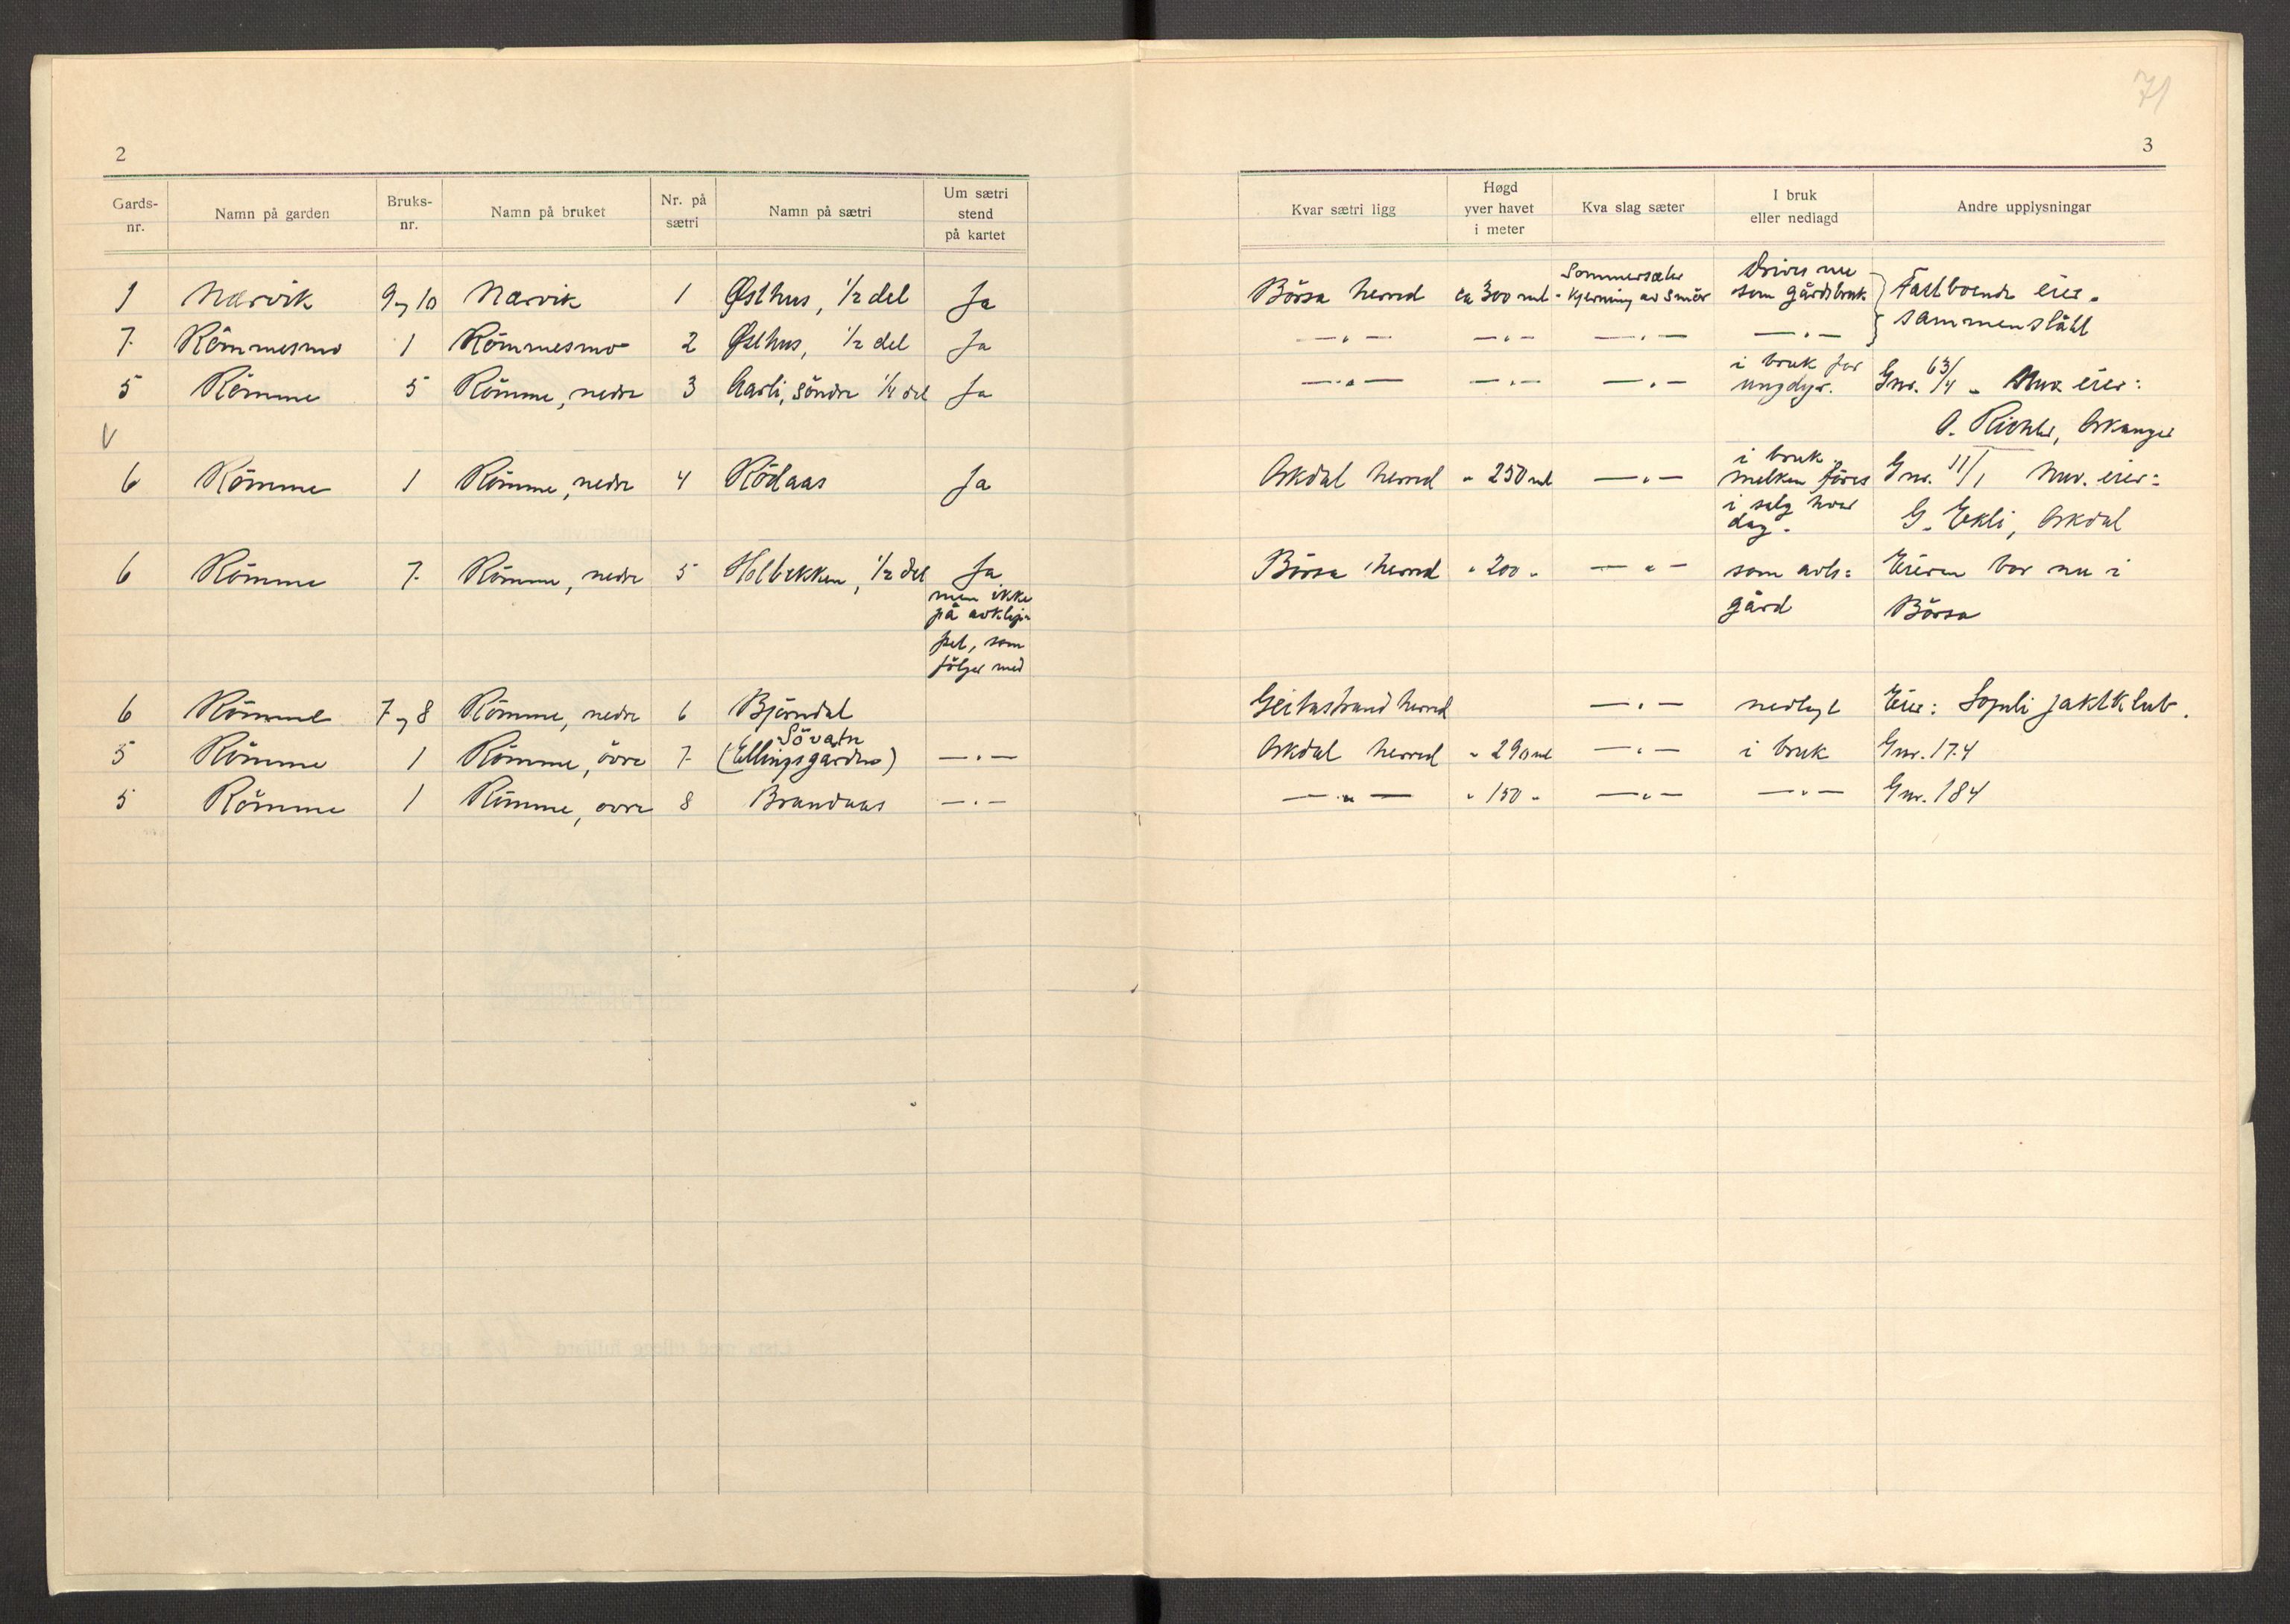 71
2
3
Gards-nr. Namn på garden Bruks-nr. Namn på bruket Nr. på sætri Namn på sætri Um sætri stend på kartet Kvar sætri ligg Høgd yver havet i meter Kva slag sæter I bruk eller nedlagd Andre upplysningar
1 Narvik 9 og 10 Narvik 1 Østhus, 1/2 del Ja Börsa herred ca 300 mt Sommersæter - Kjerning av smör Drives nu som gårdsbruk Fastboende eier.
7 Römmesmo 1 Römmesmo 2 Østhus, 1/2 del Ja — " — — " — — " — — " — sammenslått
5 Römme 5 Römme, nedre 3 Aarli, Söndre 1/4 del Ja — " — — " — — " — i bruk for ungdyr. Gnr. 63/4 - Nuv. eier:
V A. Richter, Orkanger
6 Römme 1 Römme, nedre 4 Rödaas Ja Orkdal herred " 250 mt — " — i bruk. melken föres i salg hver dag. Gnr. 11/1 Nuv. eier:
G. Eekli, Orkdal
6 Römme 7 Römme, nedre 5 Holbekken, 1/2 del Ja men ikke på avklip- Börsa herred " 200 " — " — som avls= gård Eieren bor nu i Börsa
pet, som
fölger med
6 Römme 7 og 8 Römme, nedre 6 Björndal Geitastrand herred — " — nedlagt Eier: Songli jaktklub.
5 Römme 1 Römme, övre 7 Sövatn (Ellingsgarden) — " — Orkdal herred " 290 mt — " — i bruk Gnr. 174
5 Römme 1 Römme, ovre 8 Brandaas — " — — " — " 150 " — " — — " — Gnr. 184